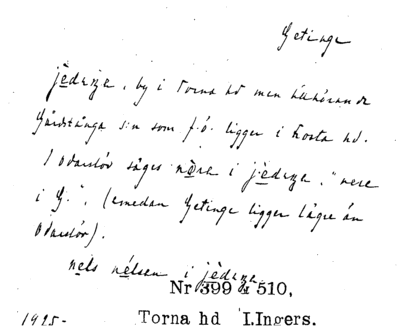 Getinge
jèdeṇe, by i Torna hd men tillhörande
Gårdstånga s:n som f.ö. ligger i Frosta hd.
I Odarslöv säges nèṛe i jèdeṇe, "nere
i G.", (emedan Getinge ligger lägre än
Odarslöv).
nels nélsen i jèdeṇe
Nr 399 & 510,
1925- Torna hd I.Ingers.